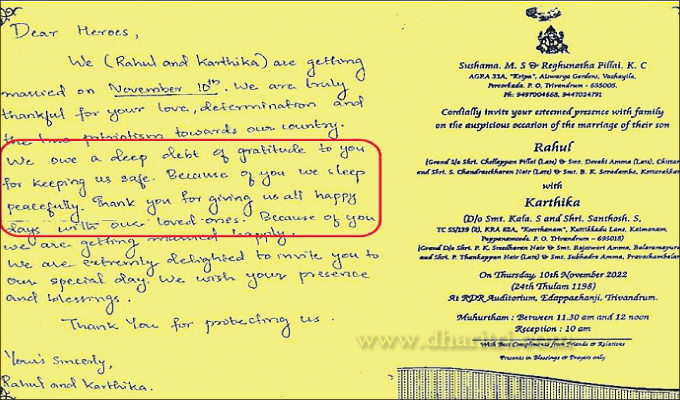 Dear Heroes,
We (Rahul and Karthika) are getting
married on November 10th. We are truly
thankful for your love, determination and
the true patriotism towards our country.
We owe a deep debt of gratitude to you
for keeping us safe. Because of you we sleep
peacefully. Thank you for giving us all happy
days with our loved ones. Because of you
we are getting married happily.
We are extremly delighted to invite you to
our special day. We wish your presence
and blessings.
Thank You for protecting us.
Your's sincerly,
Rahul and Karthika.
Sushama. M. S & Reghunatha Pillai. K. C
AGRA 33A, "Kripa", Aiswarya Gardens, Vazhayila,
Peroorkada. P. O, Trivandrum - 695005.
Ph: 9497004668, 9447024791
Cordially invite your esteemed presence with family
on the auspicious occasion of the marriage of their son
Rahul
(Grand S/o Shri. Chellappan Pillai (Late) & Smt. Devaki Amma (Late), Chittar
and Shri. S. Chandrasekharan Nair (Late) & Smt. B. K. Saradamba, Kottarakkar
with
Karthika
(D/o Smt. Kala. S and Shri. Santhosh. S,
TC 53/139 (2), KRA 62A, "Keerthanam", Kuttikkadu Lane, Kaimanam,
Pappanamcode. P. O, Trivandrum - 695018)
(Grand D/o Shri. P. K. Sreedharan Nair & Smt. Rajeswari Amma, Balaramapura
and Shri. P. Thankappan Nair (Late) & Smt. Subhadra Amma, Pravachambalam
On Thursday, 10th November 2022
(24th Thulam 1198)
At RDR Auditorium, Edappazhanji, Trivandrum.
Muhurtham : Between 11.30 am and 12 noon
Reception : 10 am
With Best Compliments from Friends & Relatives
Presents in Blessings & Prayers only
www.dharitri.com